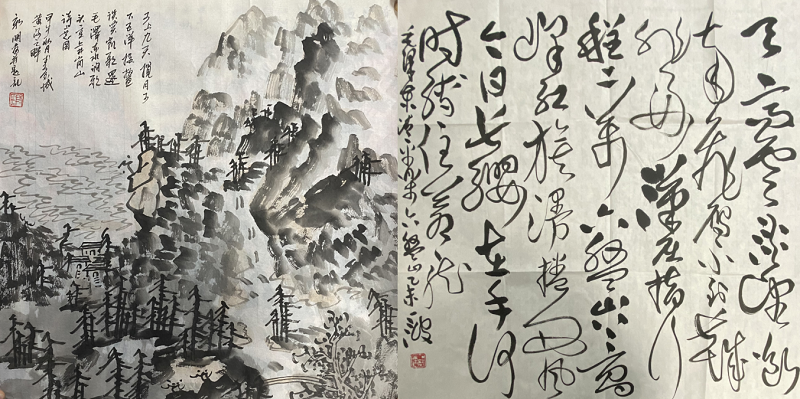 可上九天攬月可
下五洋捉鳖
谈笑凯歌還
毛澤東水調歌
头重上井岡山
詞意圖
甲午秋月于古城
黄河之畔
天高雲淡望斷
南飛雁不到長城
非好漢屈指行
程二萬六盤山上高
峰红旗漫捲西風
今日長纓在手何
時縛住蒼龍
毛澤東清平樂六盤山乙未